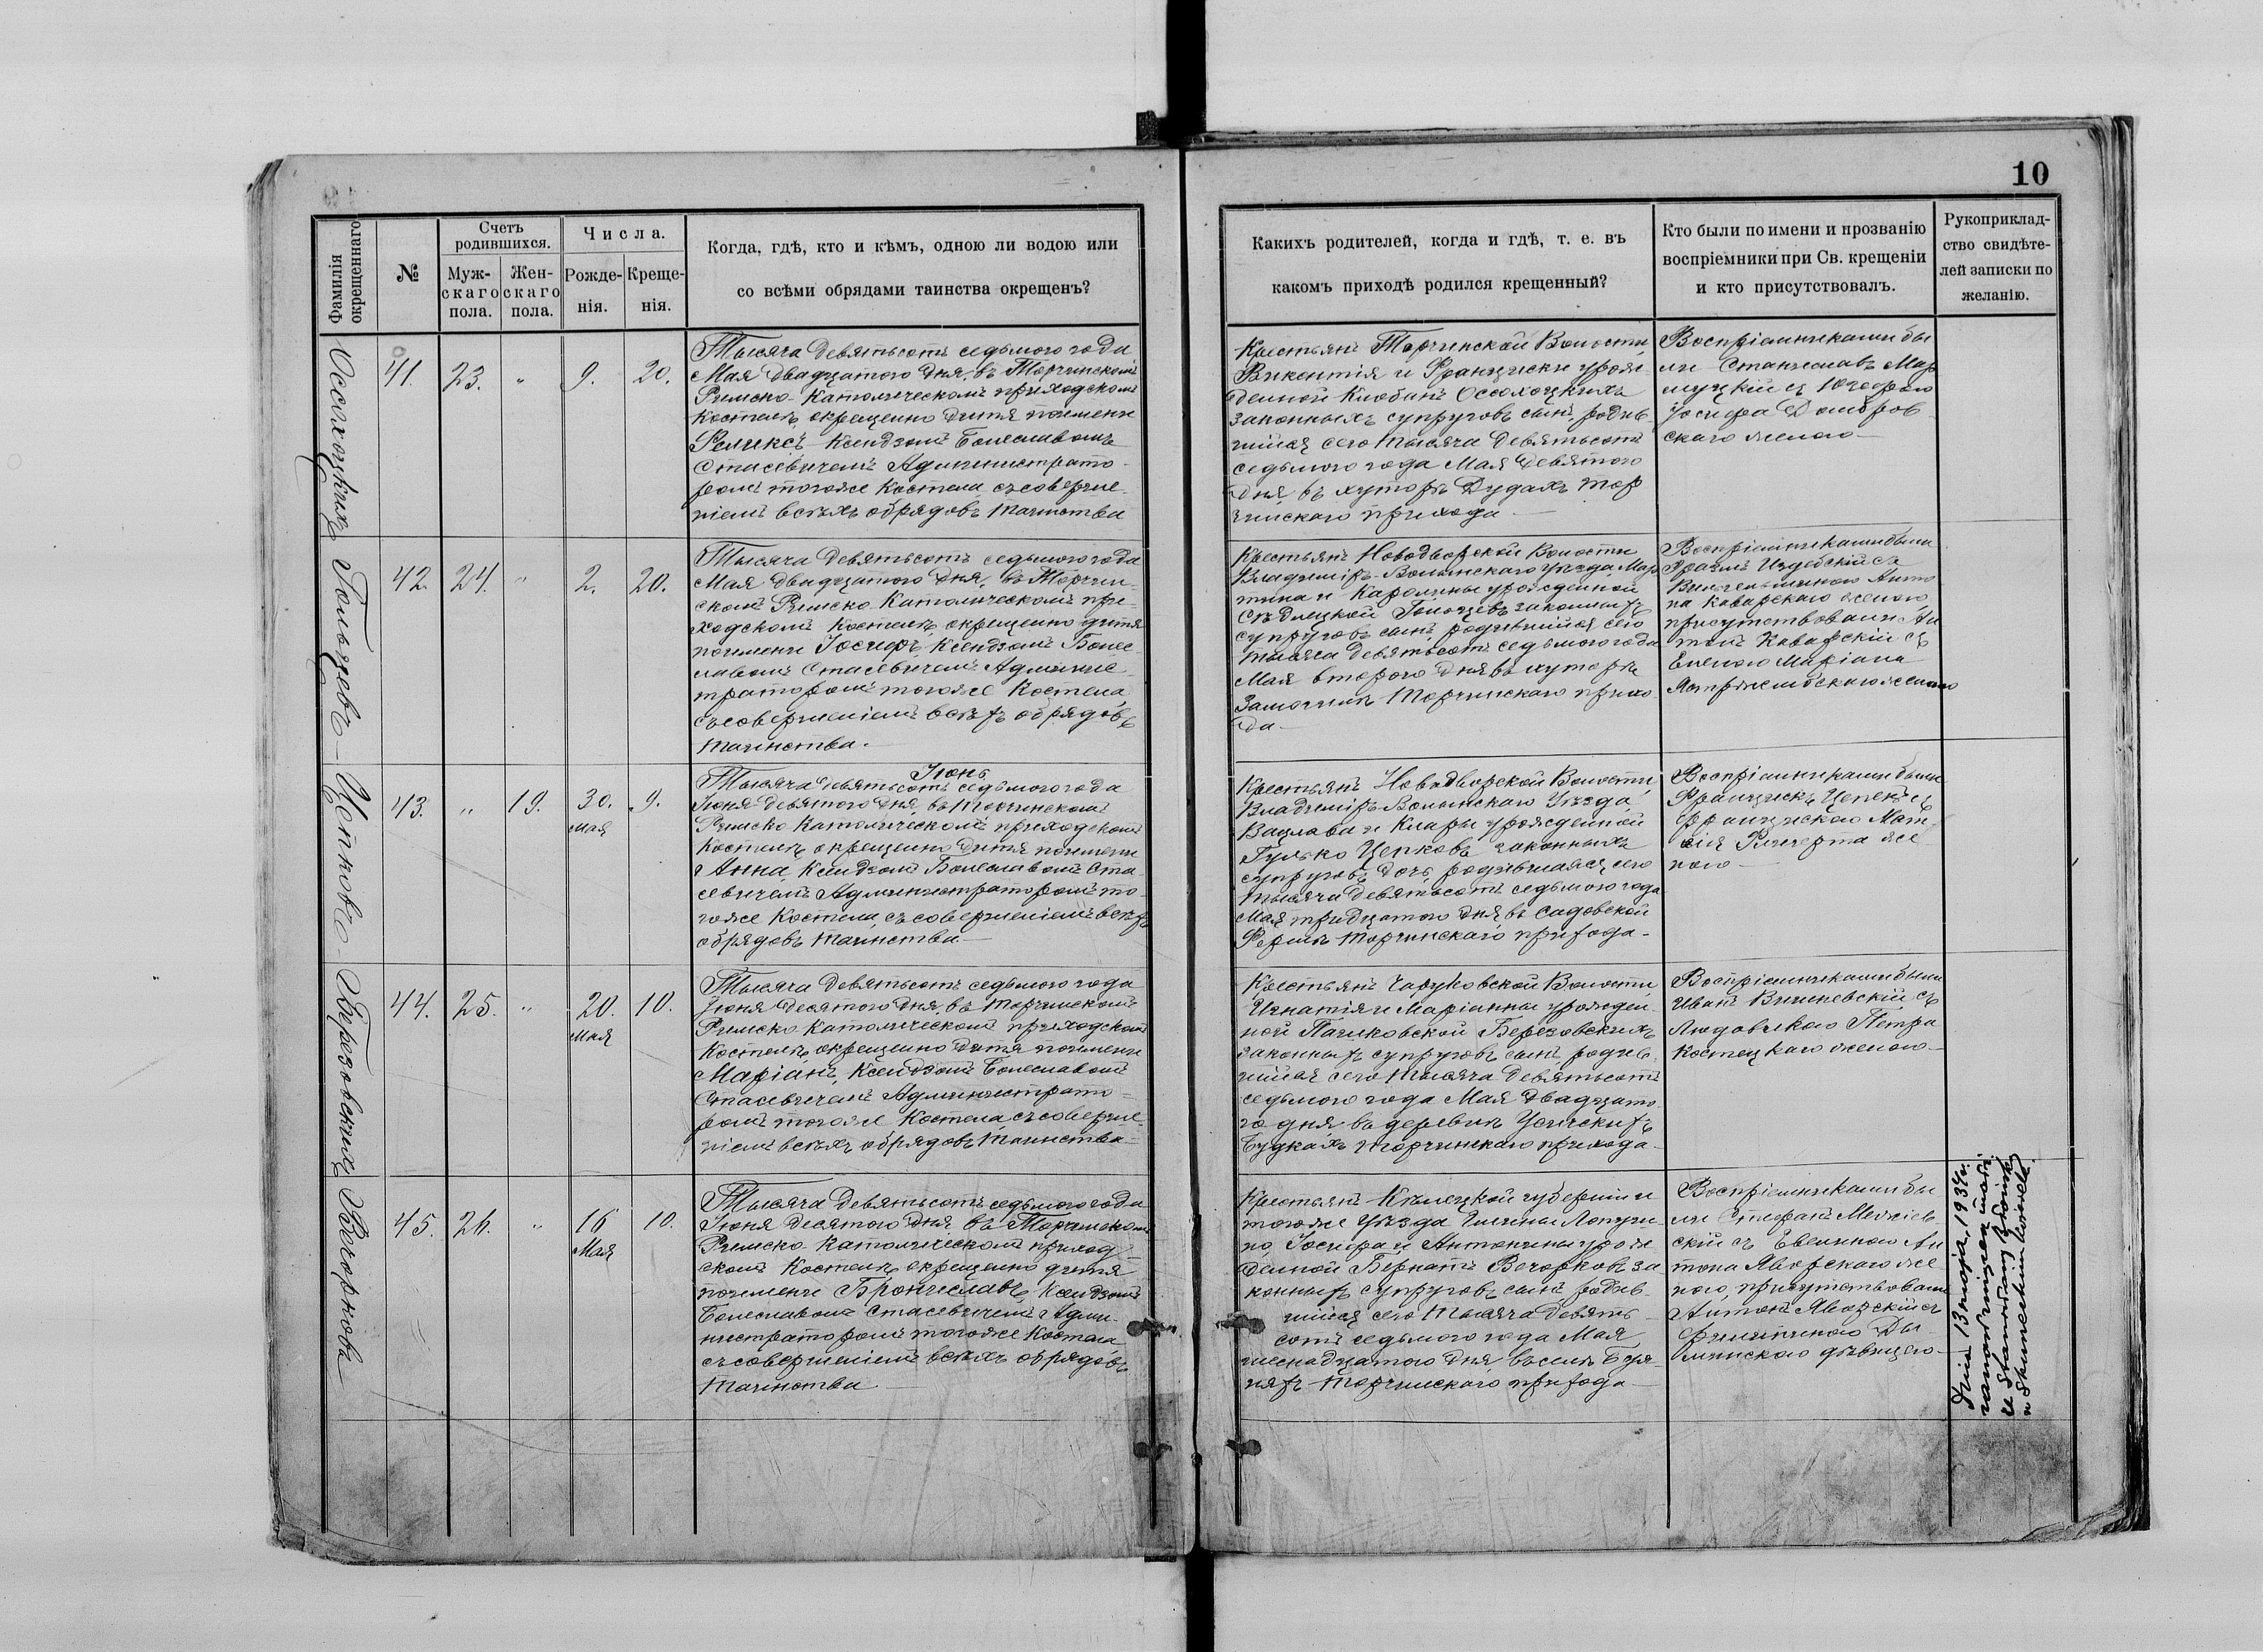 10
Фамилія
окрещеннаго
№
Счетъ
родившихся.
Муж-
скаго
пола.
Жен-
скаго
пола.
Числа.
Рожде-
нія.
Креще-
нія.
Когда, гдѣ, кто и кѣмъ, одною ли водою или
со всѣми обрядами таинства окрещенъ?
Какихъ родителей, когда и гдѣ, т. е. въ
какомъ приходѣ родился крещенный?
Кто были по имени и прозванію
воспріемники при Св. крещеніи
и кто присутствовалъ.
Рукоприклад-
ство свидѣте-
лей записки по
желанію.
Осолоцкихъ
41.
23.
"
9.
20.
Тысяча девятьсотъ седьмого года
Мая двадцатого дня, въ Торчинскомъ
Римско-Католическомъ приходскомъ
Костелѣ, окрещено дитя поимени
Феликсъ Ксендзомъ Болеславомъ
Стасевичемъ Администрато-
ромъ тогоже Костела, съ соверше-
ніемъ всѣхъ обрядовъ таинства
Крестьянъ Торчинской Волости,
Викентія и Францишки урож
денной Клюбанъ Осолоцкихъ
законныхъ супруговъ сынъ, родив-
шійся сего тысяча девятьсотъ
седьмого года Мая девятого
дня, въ хуторѣ Дудахъ Тор
чинскаго прихода
Воспріемниками бы
ли Станиславъ Мар
съ Юзефою
Іосифа Домбров
скаго женою
Гольцовъ
42.
24.
"
2.
20.
Тысяча девятьсотъ седьмого года
Мая двадцатого дня, въ Торчин-
скомъ Римско Католическомъ при-
ходскомъ Костелѣ, окрещено дитя
поимени Іосифъ, Ксендзомъ Болес-
лавомъ Стасевичемъ Админис-
траторомъ тогоже Костела,
съ совершеніемъ всѣхъ обрядовъ
таинства.
Крестьянъ Новодворской Волости
Владиміръ-Волынскаго уѣзда, Мар
тина и Каролины урожденной
Сѣдлецкой Гольцовъ законныхъ
супруговъ сынъ, родившійся сего
тысяча девятьсотъ седьмого года
Мая второго дня въ хуторѣ
Торчинскаго прихо
да
Воспріемниками были
съ
Вильгельминою Анто
на Каварскаго женою,
присутствовали Ан
тонъ Каварскій съ
Еленою Маріана
женою
Цепково
43.
"
19.
30.
мая
9.
Іюнь
Тысяча девятьсотъ седьмого года
Іюня девятого дня, въ Торчинскомъ
Римско Католическомъ приходскомъ
Костелѣ, окрещено дитя поимени
Анна, Ксендзомъ Болеславомъ Ста
севичемъ Администраторомъ то-
гоже Костела, съ совершеніемъ всѣхъ
обрядовъ таинства
Крестьянъ Новодворской Волости,
Владиміръ-Волынскаго Уѣзда,
Вацлава и Клары урожденной
Гулько Цепковъ законныхъ
супруговъ дочь, родившаяся сего
тысяча девятьсотъ седьмого года
Мая тридцатого дня, въ Садовской
Фермѣ Торчинскаго прихода
Воспріемниками были
Францискъ Цепекъ съ
Францискою Мат-
вія Рихерта же
ною
Березовскихъ
44.
25.
"
20.
мая
10.
Тысяча девятьсотъ седьмого года
Іюня десятого дня, въ Торчинскомъ
Римско Католическомъ приходскомъ
Костелѣ, окрещено дитя поимени
Маріанъ, Ксендзомъ Болеславомъ
Стасевичемъ Администрато-
ромъ тогоже Костела, съ соверше-
ніемъ всѣхъ обрядовъ таинства
Крестьянъ Чаруковской Волости,
Игнатія и Маріанны урожден-
ной Пачковской Березовскихъ
законныхъ супруговъ сынъ, родив-
шійся сего тысяча девятьсотъ
седьмого года Мая двадцато-
го дня въ деревнѣ Усичскихъ
Будкахъ Торчинскаго прихода
Воспріемниками были
Иванъ Вишневскій съ
Людовикою Петра
Костецкаго женою
Вечоркова
45.
26.
"
16
Мая
10.
Тысяча девятьсотъ седьмого года
Іюня десятого дня въ Торчинскомъ
Римско Католическомъ приход
скомъ Костелѣ окрещено дитя
поимени Брониславъ, Ксендзомъ
Болеславомъ Стасевичемъ Адми-
нистраторомъ тогоже Костела
съ совершеніемъ всѣхъ обрядовъ
таинства
Крестьянъ Кѣлецкой губерніи и
тогоже уѣзда Гмины Лопуш-
но, Іосифа и Антонины урож
денной Бернатъ Вечорковъ за
конныхъ супруговъ сынъ, родив-
шійся сего тысяча девять
сотъ седьмого года Мая
шеснадцатого дня, въ селѣ
Торчинскаго прихода
Воспріемниками бы
ли Стефанъ
скій съ Евелиною Ан
тона Яворскаго же
ною, присутствовали
Антонъ Яворскій съ
дѣвицею
Dnia 13 maja 1934 r.